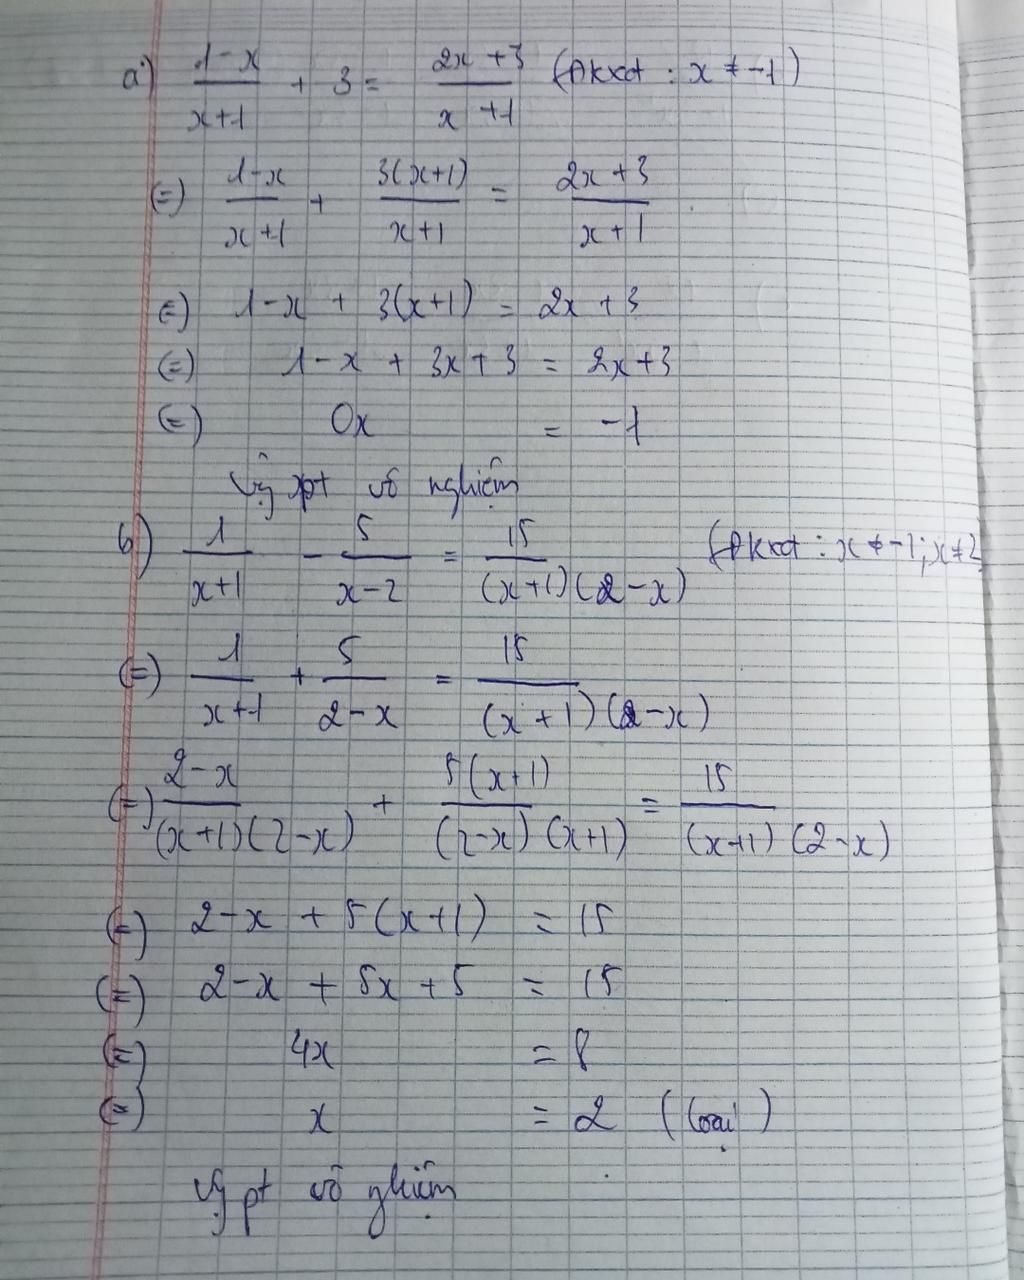 a) (1-x)/(x+1) + 3 = (2x+3)/(x+1) (Đkxđ : x ≠ -1)
(=) (1-x)/(x+1) + 3(x+1)/(x+1) = (2x+3)/(x+1)
(=) 1-x + 3(x+1) = 2x + 3
(=) 1-x + 3x + 3 = 2x+3
(=) 0x = -1
Vậy pt vô nghiệm
b) 1/(x+1) - 5/(x-2) = 15/((x+1)(2-x)) (Đkxđ : x ≠ -1; x ≠ 2
(=) 1/(x+1) + 5/(2-x) = 15/((x+1)(2-x))
(=) (2-x)/((x+1)(2-x)) + 5(x+1)/((2-x)(x+1)) = 15/((x+1)(2-x))
(=) 2-x + 5(x+1) = 15
(=) 2-x + 5x + 5 = 15
(=) 4x = 8
(=) x = 2 (loại)
Vậy pt vô nghiệm